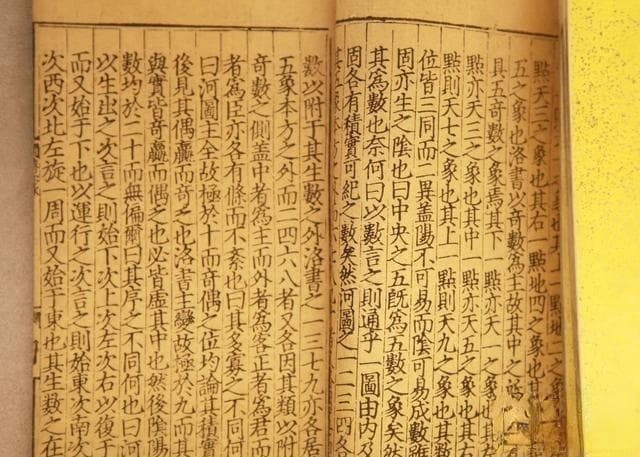 點天三之象也其右一點地四之象也其
五之象也洛書以奇數爲主故其中之
具五奇數之象焉其下一點亦天一之象也其左
點亦天三之象也其中一點亦天五之象也其右
點則天七之象也其上一點則天九之象也其數
位皆三同而二異蓋陽不可易而陰可易成數雖
固亦生之陰也曰中央之五旣爲五數之象矣然
其爲數也奈何曰以數言之則通乎一圖由內及
固各有積實可紀之數矣然河圖之一二三四各
數以附于其生數之外洛書之一三七九亦各居
五象本方之外而二四六八者又各因其類以附
奇數之側蓋中者爲主而外者爲客正者爲君而
者爲臣亦各有條而不紊也曰其多寡之不同何
曰河圖主全故極於十而奇偶之位均論其積實
後見其偶贏而奇乏也洛書主變故極於九而其
與實皆奇贏而偶乏也必皆虛其中也然後陰陽
數均於二十而無偏爾曰其序之不同何也曰河
以生出之次言之則始下次上次左次右以復于
而又始于下也以運行之次言之則始東次南次
次西次北左旋一周而又始于東也其生數之在